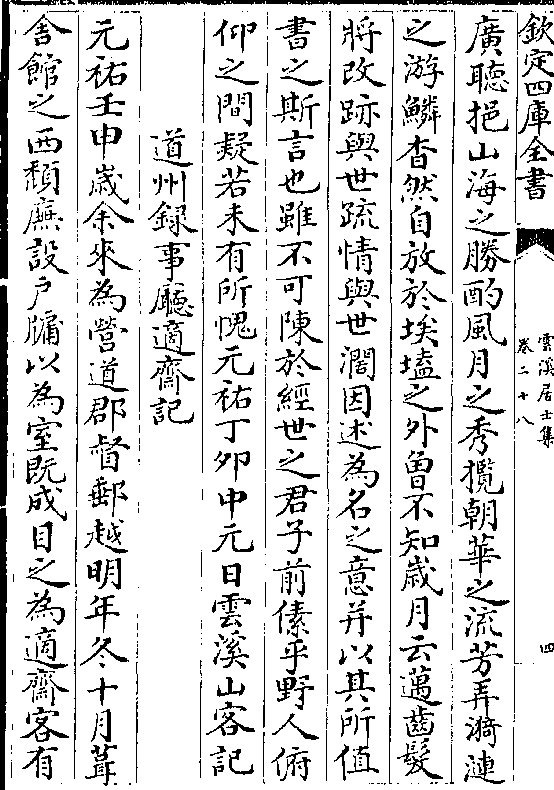 欽定四庫全書
雲溪居士集
卷二十八
四
廣聽挹山海之勝酌風月之秀攬朝華之流芳弄漪漣
之游鱗杳然自放於埃壒之外曾不知歲月云邁齒髮
將改跡與世疏情與世濶因述為名之意并以其所值
書之斯言也雖不可陳於經世之君子前傃乎野人俯
仰之間疑若未有所愧元祐丁夘中元日雲溪山客記
道州録事廳適齋記
元祐壬申歲余來為營道郡督郵越明年冬十月葺
舍館之西頽廡設戶牖以為室既成目之為適齋客有